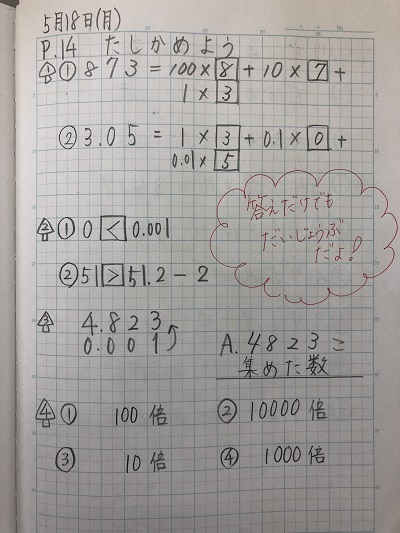 5月18日(月)
P.14 たしかめよう
1 ① 873 = 100×8 + 10×7 +
1×3
② 3.05 = 1×3 + 0.1×0 +
0.01×5
答えだけでも
だいじょうぶ
だよ!
2 ① 0 < 0.001
② 51 > 51.2 - 2
3 4.823
0.001
A. 4823こ
集めた数
4 ① 100倍 ② 10000倍
③ 10倍 ④ 1000倍